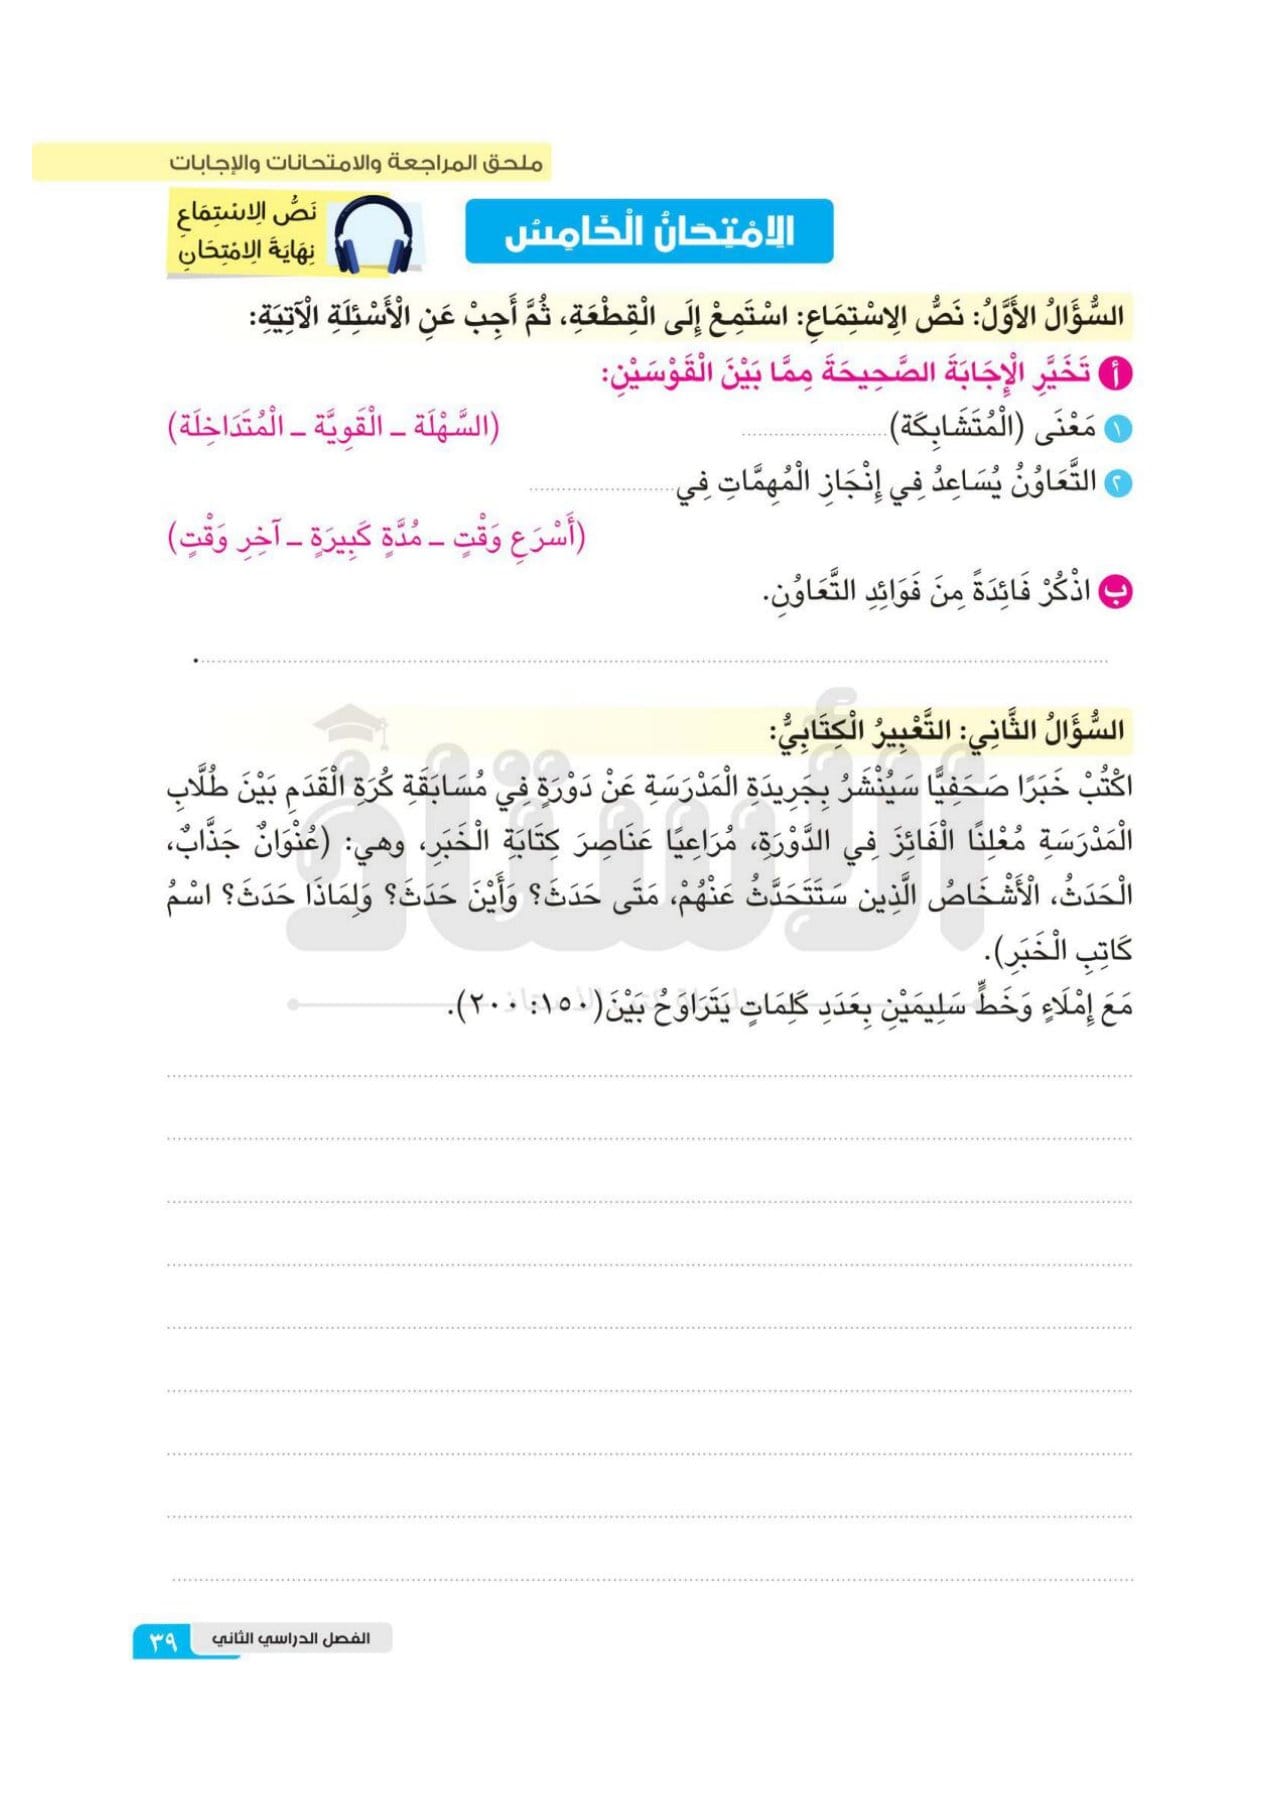 ملحق المراجعة والامتحانات والإجابات
نَصُّ الِاسْتِمَاعِ
نِهَايَةَ الِامْتِحَانِ
الِامْتِحَانُ الْخَامِسُ
السُّؤَالُ الأَوَّلُ: نَصُّ الِاسْتِمَاعِ: اسْتَمِعْ إِلَى الْقِطْعَةِ، ثُمَّ أَجِبْ عَنِ الْأَسْئِلَةِ الْآتِيَةِ:
أ تَخَيَّرِ الْإِجَابَةَ الصَّحِيحَةَ مِمَّا بَيْنَ الْقَوْسَيْنِ:
١ مَعْنَى (الْمُتَشَابِكَة) .......... (السَّهْلَة – الْقَوِيَّة – الْمُتَدَاخِلَة)
٢ التَّعَاوُنُ يُسَاعِدُ فِي إِنْجَازِ الْمُهِمَّاتِ فِي ..........
(أَسْرَعِ وَقْتٍ – مُدَّةٍ كَبِيرَةٍ – آخِرِ وَقْتٍ)
ب اذْكُرْ فَائِدَةً مِنَ فَوَائِدِ التَّعَاوُنِ.
السُّؤَالُ الثَّانِي: التَّعْبِيرُ الْكِتَابِيُّ:
اكْتُبْ خَبَرًا صَحَفِيًّا سَيُنْشَرُ بِجَرِيدَةِ الْمَدْرَسَةِ عَنْ دَوْرَةٍ فِي مُسَابَقَةِ كُرَةِ الْقَدَمِ بَيْنَ طُلَّابِ
الْمَدْرَسَةِ مُعْلِنًا الْفَائِزَ فِي الدَّوْرَةِ، مُرَاعِيًا عَنَاصِرَ كِتَابَةِ الْخَبَرِ، وهي: (عُنْوَانٌ جَذَّابٌ،
الْحَدَثُ، الْأَشْخَاصُ الَّذِين سَتَتَحَدَّثُ عَنْهُمْ، مَتَى حَدَثَ؟ وَأَيْنَ حَدَثَ؟ وَلِمَاذَا حَدَثَ؟ اسْمُ
كَاتِبِ الْخَبَرِ).
مَعَ إِمْلَاءٍ وَخَطٍّ سَلِيمَيْنِ بِعَدَدِ كَلِمَاتٍ يَتَرَاوَحُ بَيْنَ (١٥٠: ٢٠٠).
الأستاذ
الفصل الدراسي الثاني
٣٩